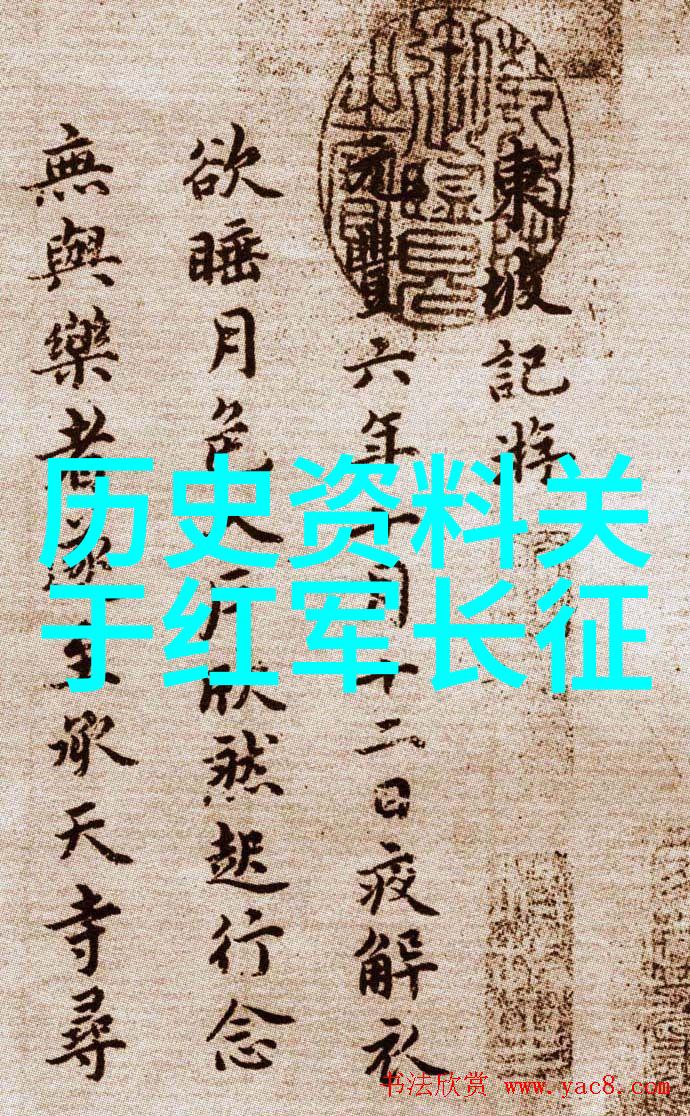 東坡記游
元豐六年十月十二日夜解衣
欲睡月色入户欣然起行念
無與樂者遂至承天寺尋
历史资料关
于红军长征
书法欣赏 www.yac8.com